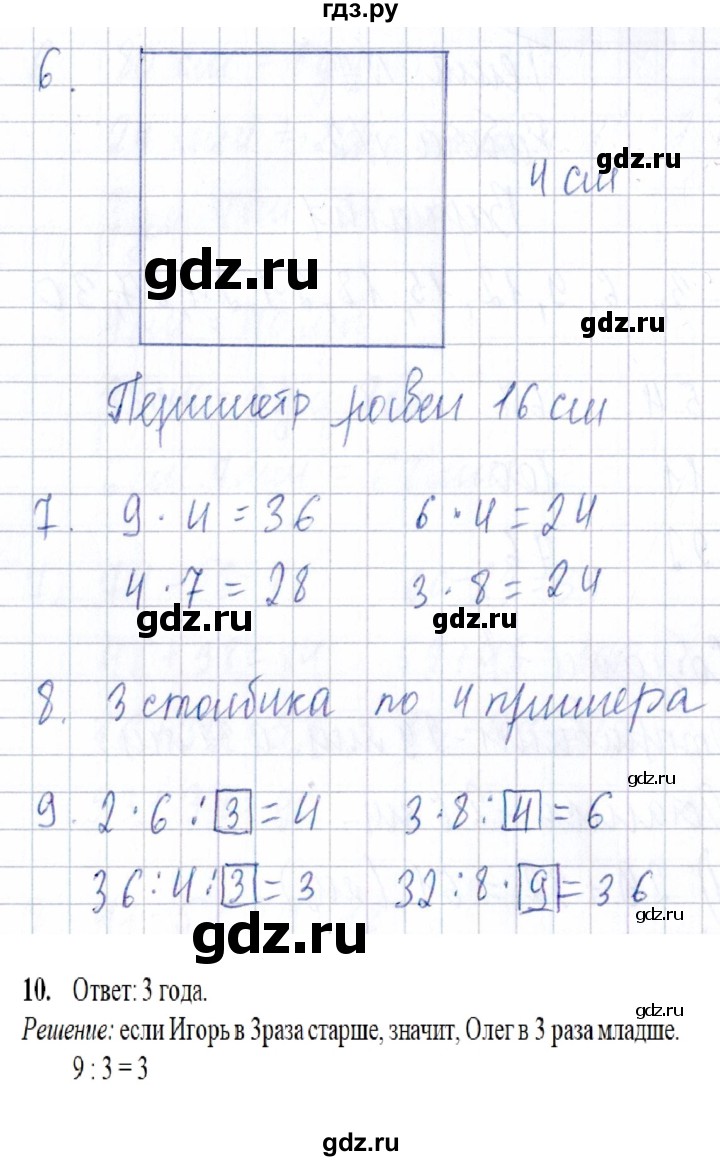 гдз.ру
6.
gdz.ru
4 см
gdz.ru
gdz.ru
Периметр равен 16 см
7. 9 · 4 = 36 6 · 4 = 24
4 · 7 = 28 3 · 8 = 24
gdz.ru gdz.ru
8. 3 столбика по 4 примера
gdz.ru
9. 2 · 6 : 3 = 4 3 · 8 : 4 = 6
36 : 4 : 3 = 3 32 : 8 · 9 = 36
gdz.ru
gdz.ru
10. Ответ: 3 года.
Решение: если Игорь в 3раза старше, значит, Олег в 3 раза младше.
9 : 3 = 3
gdz.ru